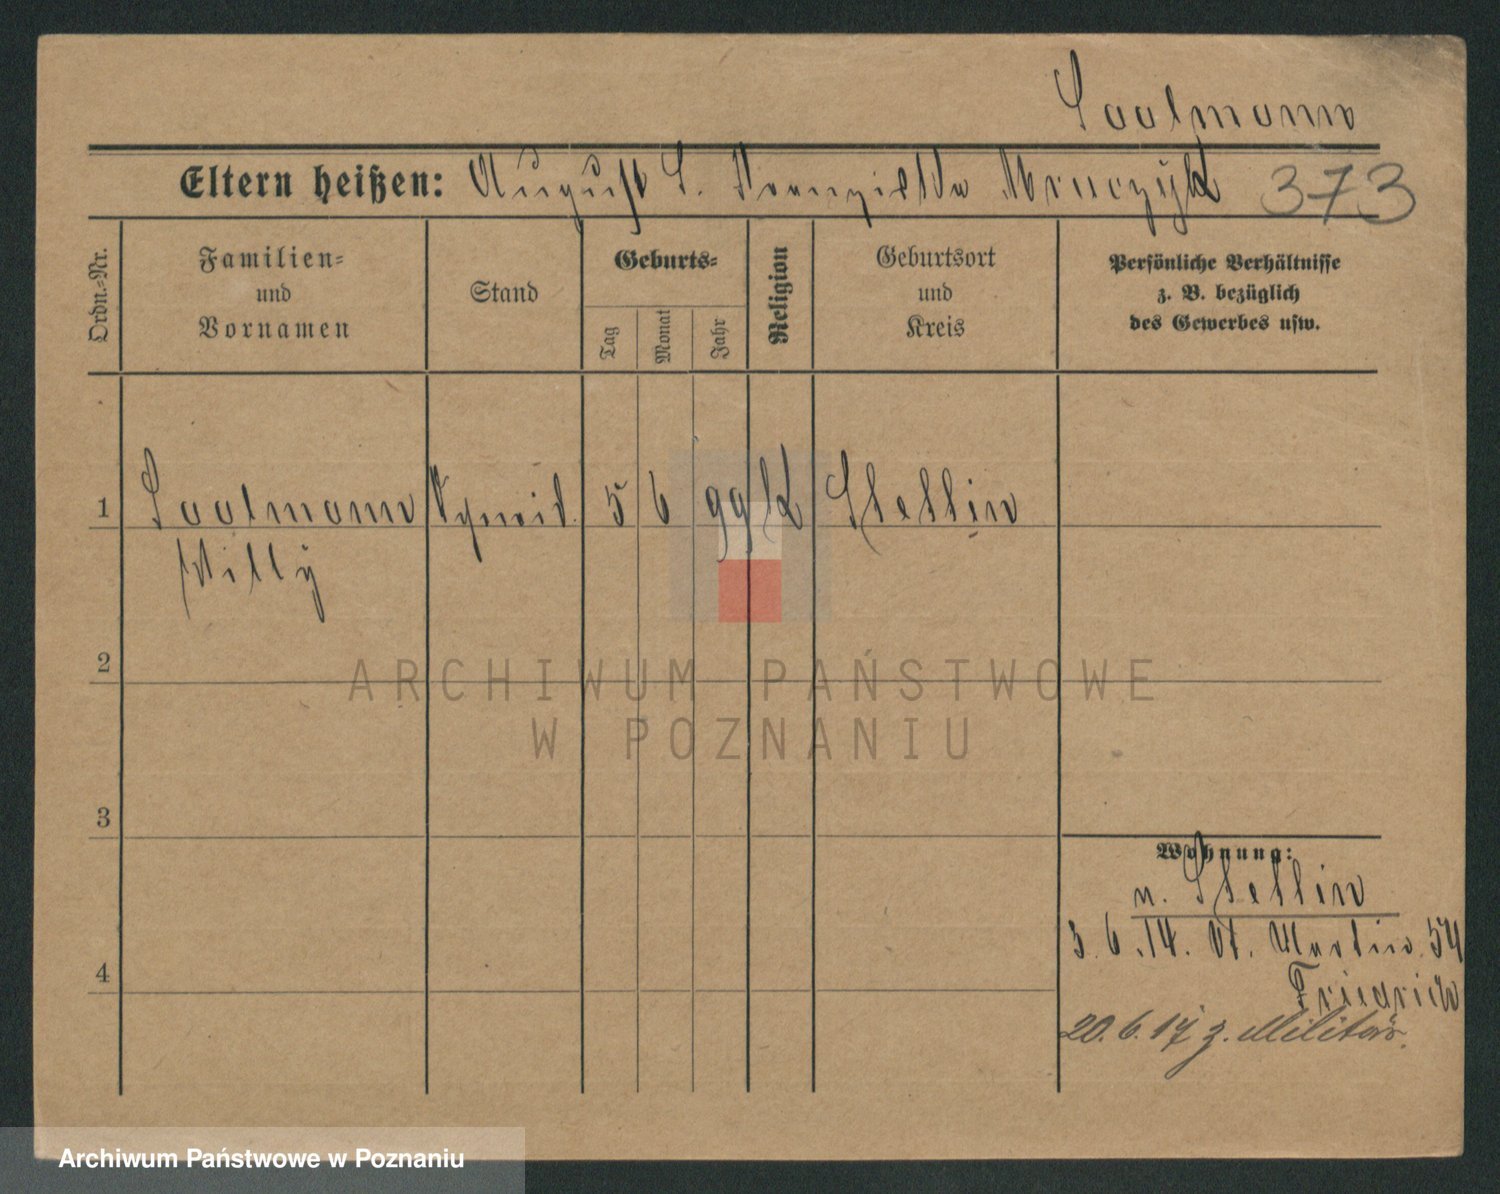 Saalmann
Eltern heißen: August S. Mruczyk 373
Ordn.-Nr.
Familien-
und
Vornamen
Stand
Geburts-
Tag
Monat
Jahr
Religion
Geburtsort
und
Kreis
Persönliche Verhältnisse
z. B. bezüglich
des Gewerbes usw.
1 Saalmann 5 6 99 K Stettin
Willy
2
ARCHIWUM PAŃSTWOWE
W POZNANIU
3
Wohnung:
n. Stettin
4
3.6.14. St. Martin 54
Friedrich
20.6.17 z. Militär.
Archiwum Państwowe w Poznaniu